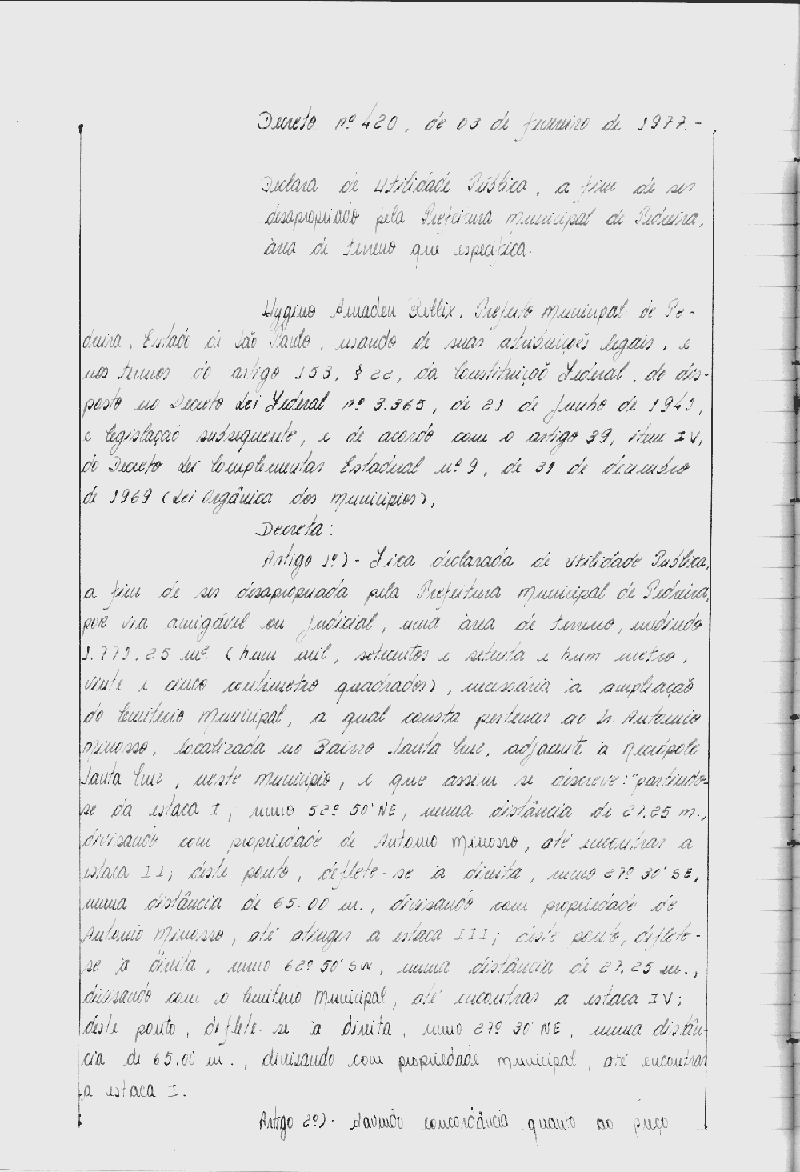 Decreto nº 420, de 03 de fevereiro de 1977.-
Declara de Utilidade Pública, a fim de ser
desapropriado pela Prefeitura Municipal de Pedreira,
área de terreno que especifica.
Hygino Amadeu Bellix, Prefeito Municipal de Pe-
dreira, Estado de São Paulo, usando de suas atribuições legais, e
nos termos do artigo 153, § 22, da Constituição Federal, do dis-
posto no Decreto Lei Federal nº 3.365, de 21 de Junho de 1941,
e legislação subsequente, e de acordo com o artigo 39, item IV,
do Decreto Lei Complementar Estadual nº 9, de 31 de dezembro
de 1969 (Lei Orgânica dos Municípios),
Decreta:
Artigo 1º) - Fica declarada de Utilidade Pública,
a fim de ser desapropriada pela Prefeitura Municipal de Pedreira,
por via amigável ou judicial, uma área de terreno, medindo
1.771.25 m² (hum mil, setecentos e setenta e hum metro,
vinte e cinco centimetro quadrados), necessária à ampliação
do Cemitério Municipal, a qual consta pertencer ao Sr Antonio
Minosso, localizada no Bairro Santa Cruz, adjacente à Necrópole
Santa Cruz, neste município, e que assim se discreve: "partindo-
se da estaca I, rumo 62º 50' NE, numa distância de 27.25 m.,
divisando com propriedade de Antonio Minosso, até encontrar a
estaca II; deste ponto, deflete-se à direita, rumo 27º 30' SE,
numa distância de 65.00 m., divisando com propriedade de
Antonio Minosso, até atingir a estaca III; deste ponto, deflete-
se à direita, rumo 62º 50' SW, numa distância de 27.25 m.,
divisando com o Cemitério Municipal, até encontrar a estaca IV;
deste ponto, deflete-se à direita, rumo 27º 30' NE, numa distân-
cia de 65.00 m., divisando com propriedade municipal, até encontrar
a estaca I.
Artigo 2º) - Havendo concordância quanto ao preço